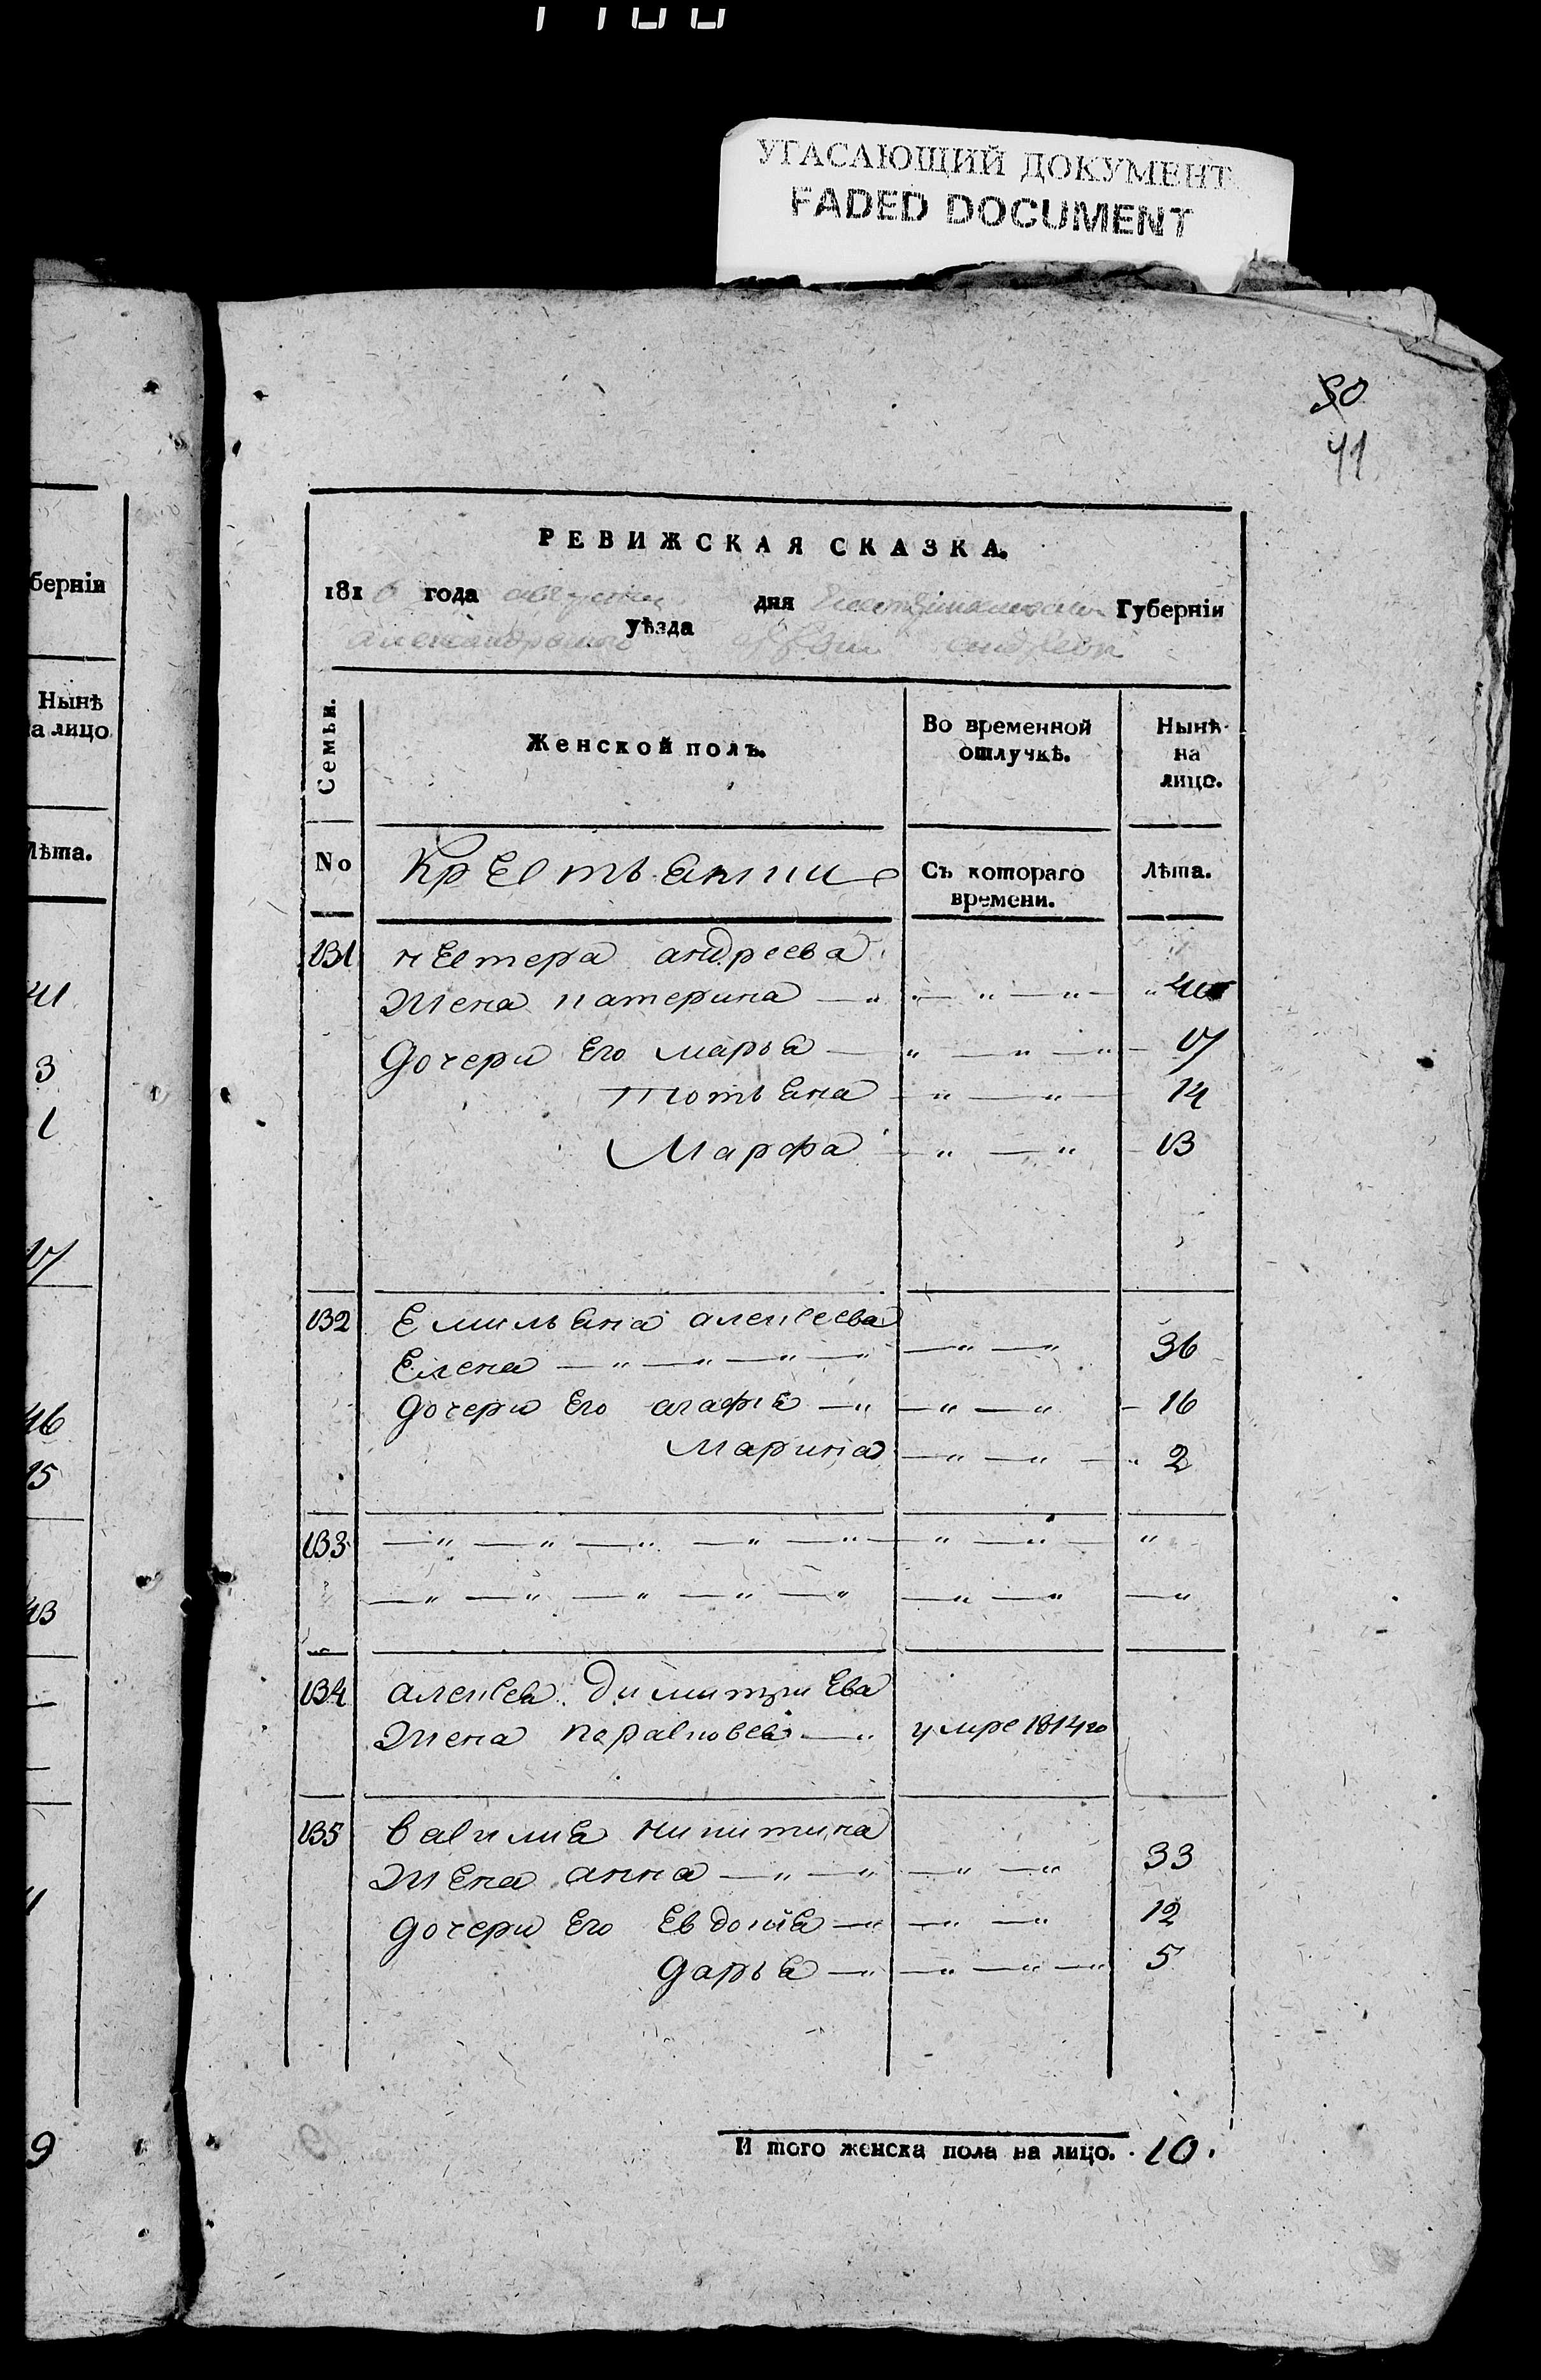 УГАСАЮЩИЙ ДОКУМЕНТ
FADED DOCUMENT
50
41
РЕВИЖСКАЯ СКАЗКА.
1816 года августа дня Екатеринославской Губерніи
александрыского уѣзда
Семьи. Женской полъ. Во временной отлучкѣ. Нынѣ на лицо.
No крестьянии Съ котораго времени. Лѣта.
131 нестера андреева
жена катерина — „ „ — „ — „ — „ 40
Дочери Его марья — „ — „ — „ — 17
Тотьяна — „ — „ — 14
Марфа — „ — „ — 13
132 Емильяна алексеева
Елена — „ — „ — „ — „ — „ — „ 36
Дочери Его агафія — „ — „ — „ — 16
Марина — „ — „ — „ 2
133 — „ — „ — „ — „ — „ — „ — „ — „
— „ — „ — „ — „ — „ — „ — „ — „
134 алексея димитриева
жена парасковея — „ умре 1814го
135 вавилиа никитина
жена анна — „ — „ — „ — „ 33
Дочери Его Евдокия — „ — „ — „ 12
Дарья — „ — „ — „ — „ 5
И того женска пола на лицо. 10.
берніи
Нынѣ
а лицо
Лѣта.
41
3
1
17
46
15
43
9